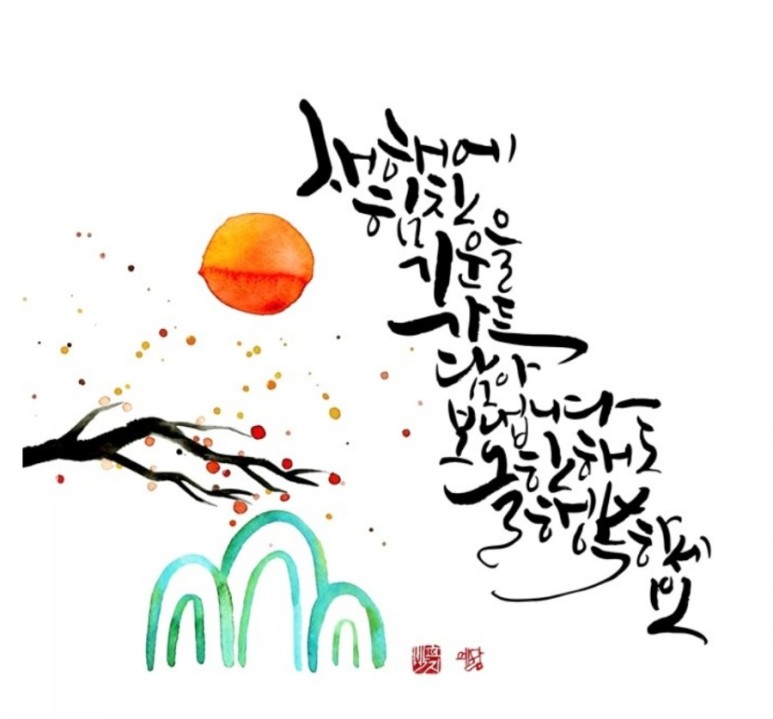 새해에
힘찬
기운을
가득
담아
보냅니다
올 한해도
행복하세요